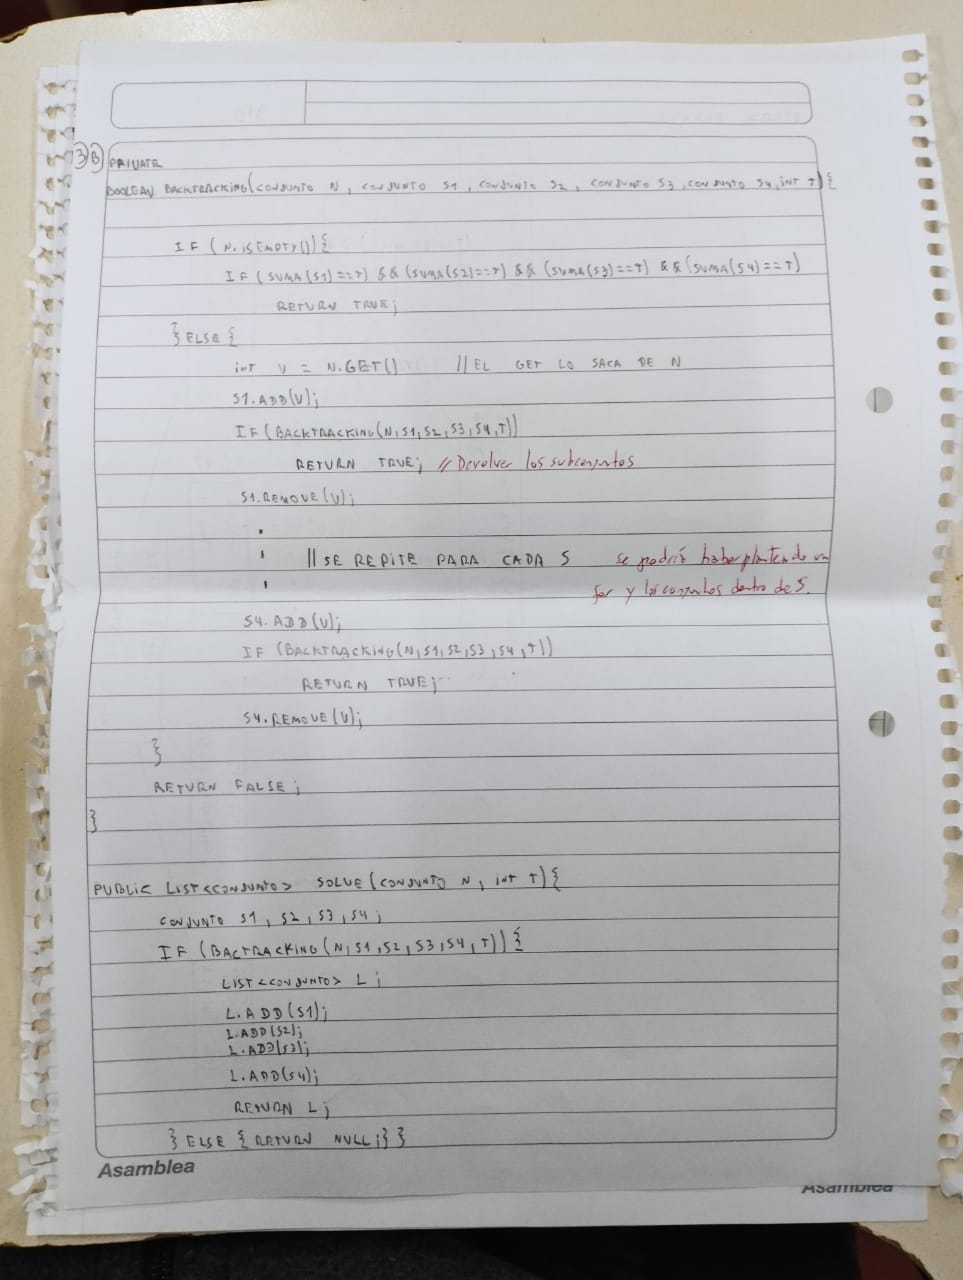 3) B) PRIVATE
BOOLEAN BACKTRACKING(CONJUNTO N, CONJUNTO S1, CONJUNTO S2, CONJUNTO S3, CONJUNTO S4, INT T){
IF (N.ISEMPTY()){
IF (SUMA(S1)==T) && (SUMA(S2)==T) && (SUMA(S3)==T) && (SUMA(S4)==T)
RETURN TRUE;
} ELSE {
INT V = N.GET() // EL GET LO SACA DE N
S1.ADD(V);
IF(BACKTRACKING(N,S1,S2,S3,S4,T))
RETURN TRUE; // Devolver los subconjuntos
S1.REMOVE(V);
.
. // SE REPITE PARA CADA S se podría haber planteado un
. for y los conjuntos dentro de S.
S4.ADD(V);
IF (BACKTRACKING(N,S1,S2,S3,S4,T))
RETURN TRUE;
S4.REMOVE(V);
}
RETURN FALSE;
}
PUBLIC LIST<CONJUNTO> SOLVE(CONJUNTO N, INT T){
CONJUNTO S1, S2, S3, S4;
IF (BACTRACKING(N,S1,S2,S3,S4,T)){
LIST<CONJUNTO> L;
L.ADD(S1);
L.ADD(S2);
L.ADD(S3);
L.ADD(S4);
RETURN L;
} ELSE { RETURN NULL;}}
Asamblea
Asamblea